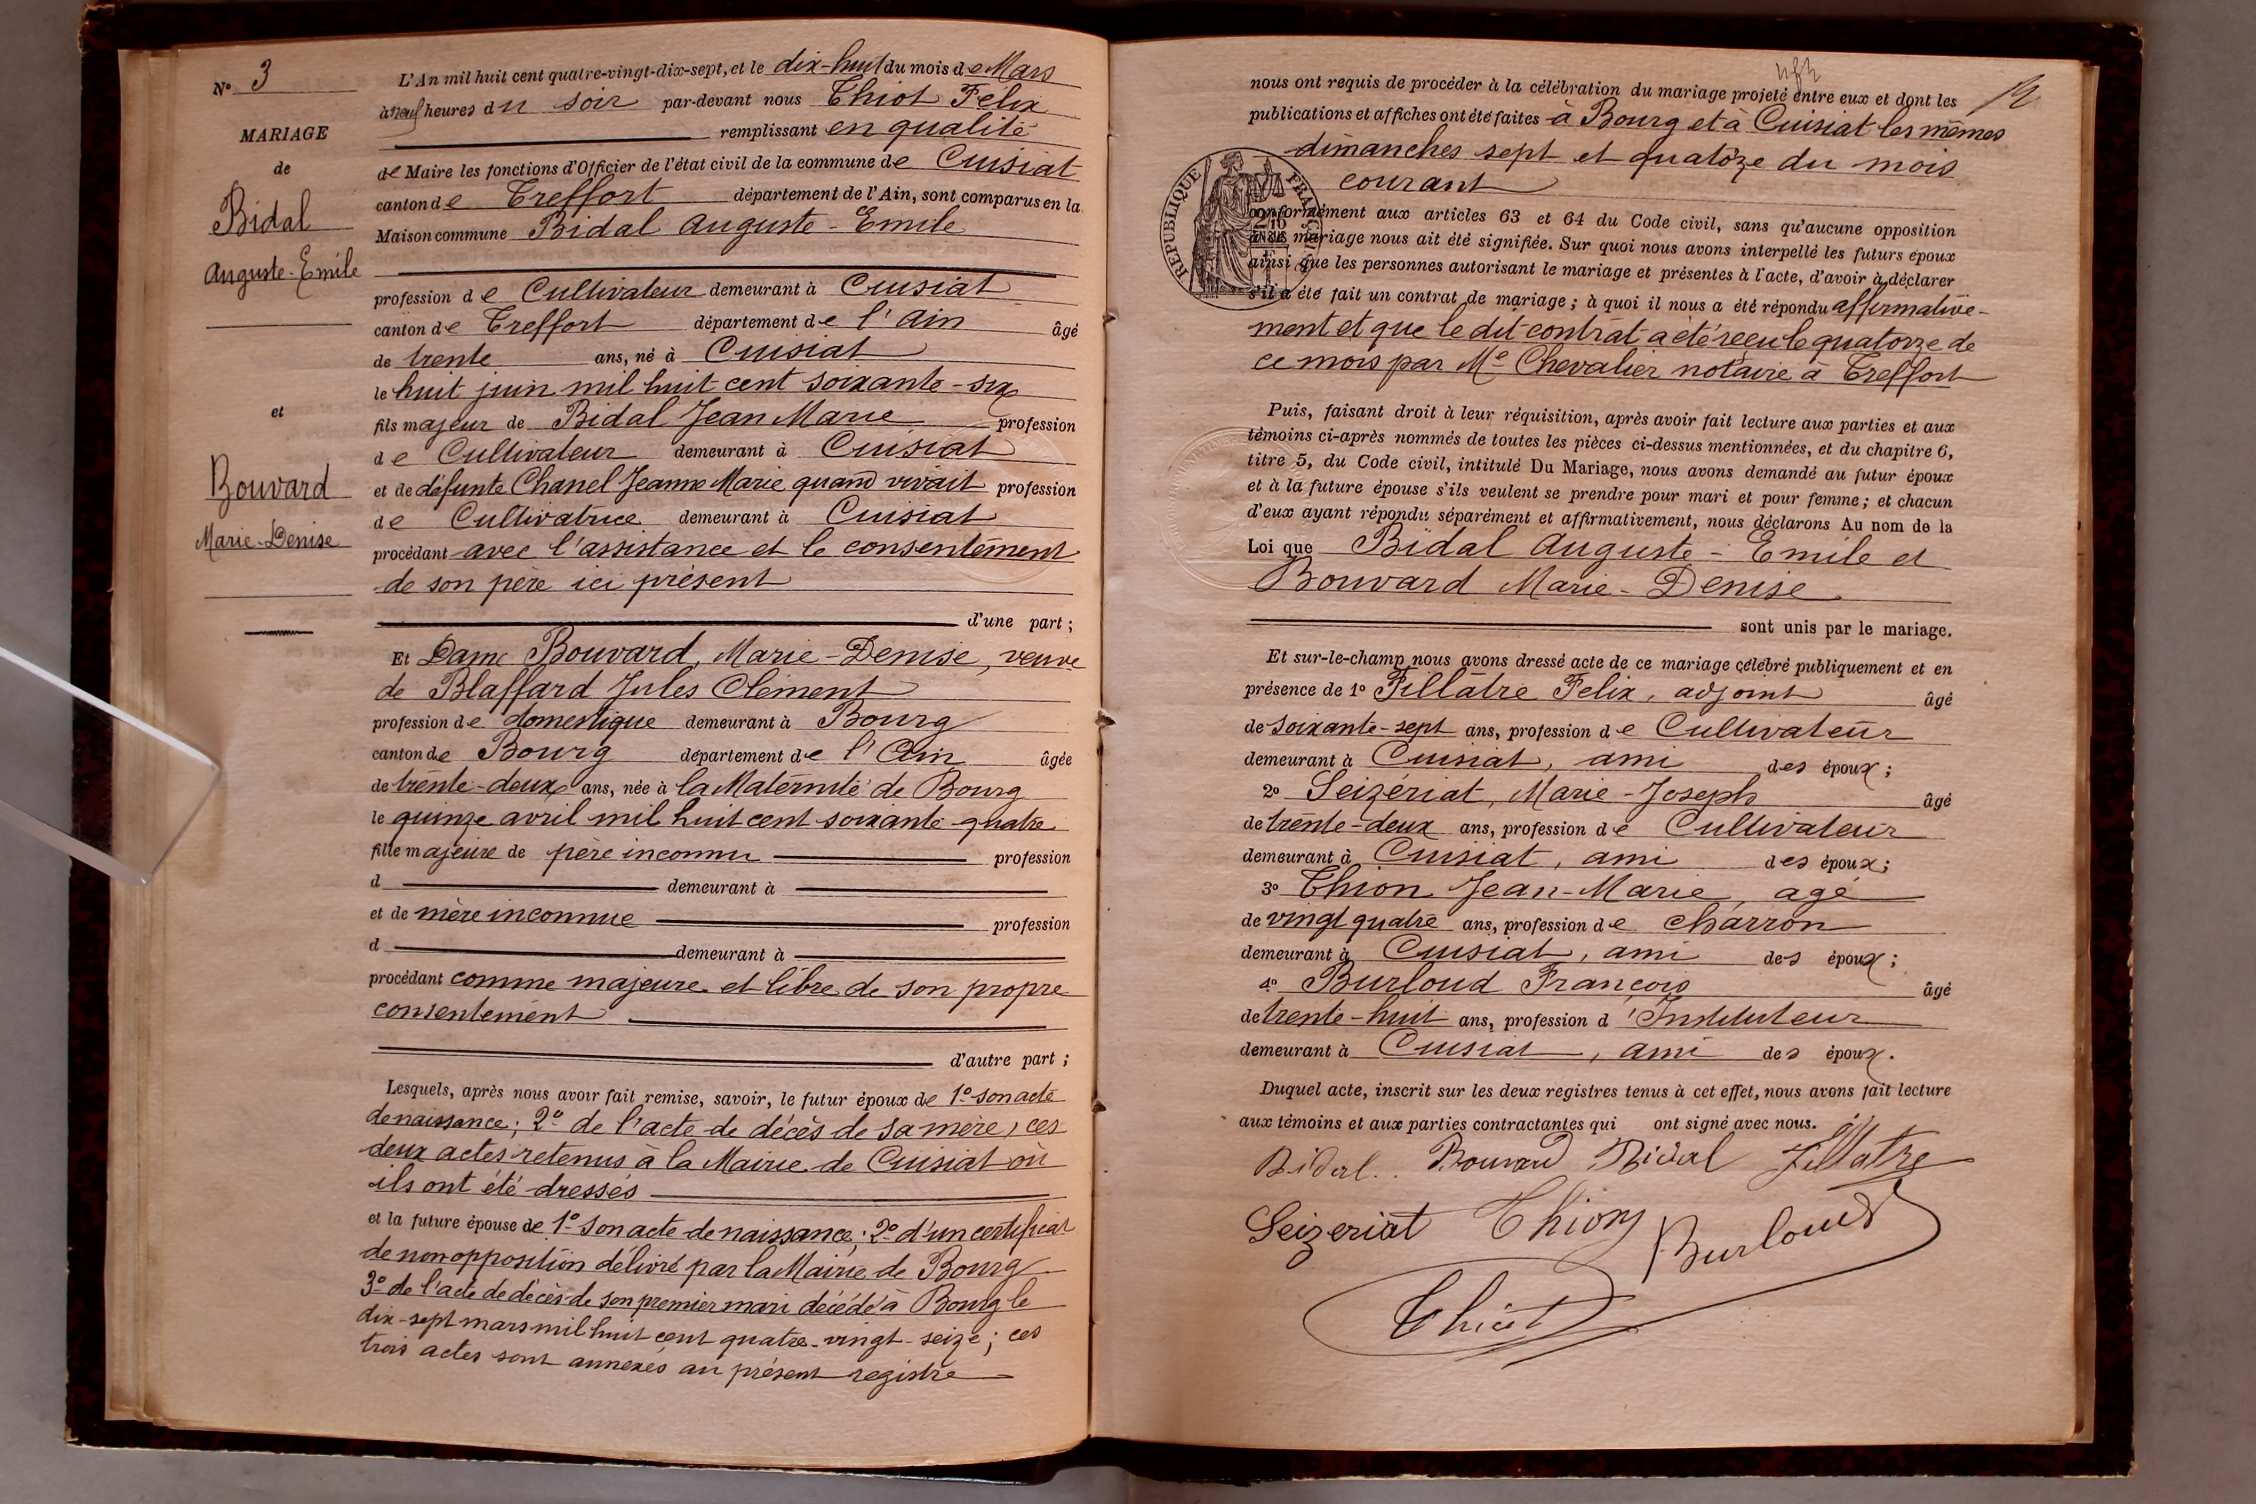 N° 3
MARIAGE
de
Bidal
Auguste-Emile
et
Bouvard
Marie-Denise
L'An mil huit cent quatre-vingt-dix-sept, et le dix-huit du mois de Mars
à neuf heures du soir par-devant nous Thiot Félix
remplissant en qualité
de Maire les fonctions d'Officier de l'état civil de la commune de Cuisiat
canton de Treffort département de l'Ain, sont comparus en la
Maison commune Bidal Auguste-Emile
profession de Cultivateur demeurant à Cuisiat
canton de Treffort département de l'Ain âgé
de trente ans, né à Cuisiat
le huit juin mil huit cent soixante-six
fils majeur de Bidal Jean Marie profession
de Cultivateur demeurant à Cuisiat
et de défunte Chanel Jeanne Marie quand vivait profession
de Cultivatrice demeurant à Cuisiat
procédant avec l'assistance et le consentement
de son père ici présent
d'une part ;
Et Dame Bouvard, Marie-Denise, veuve
de Blaffard Jules Clément
profession de domestique demeurant à Bourg
canton de Bourg département de l'Ain âgée
de trente-deux ans, née à la Maternité de Bourg
le quinze avril mil huit cent soixante-quatre
fille majeure de père inconnu profession
d demeurant à
et de mère inconnue profession
d demeurant à
procédant comme majeure et libre de son propre
consentement
d'autre part ;
Lesquels, après nous avoir fait remise, savoir, le futur époux de 1° son acte
de naissance ; 2° de l'acte de décès de sa mère, ces
deux actes retenus à la Mairie de Cuisiat où
ils ont été dressés
et la future épouse de 1° son acte de naissance ; 2° d'un certificat
de non opposition délivré par la Mairie de Bourg
3° de l'acte de décès de son premier mari décédé à Bourg le
dix-sept mars mil huit cent quatre-vingt-seize ; ces
trois actes sont annexés au présent registre
nous ont requis de procéder à la célébration du mariage projeté entre eux et dont les
publications et affiches ont été faites à Bourg et à Cuisiat les mêmes
dimanches sept et quatorze du mois
courant
RÉPUBLIQUE FRANÇAISE
conformément aux articles 63 et 64 du Code civil, sans qu'aucune opposition
à ce mariage nous ait été signifiée. Sur quoi nous avons interpellé les futurs époux
ainsi que les personnes autorisant le mariage et présentes à l'acte, d'avoir à déclarer
s'il a été fait un contrat de mariage ; à quoi il nous a été répondu affirmative-
ment et que le dit contrat a été reçu le quatorze de
ce mois par Me Chevalier notaire à Treffort
Puis, faisant droit à leur réquisition, après avoir fait lecture aux parties et aux
témoins ci-après nommés de toutes les pièces ci-dessus mentionnées, et du chapitre 6,
titre 5, du Code civil, intitulé Du Mariage, nous avons demandé au futur époux
et à la future épouse s'ils veulent se prendre pour mari et pour femme ; et chacun
d'eux ayant répondu séparément et affirmativement, nous déclarons Au nom de la
Loi que Bidal Auguste-Emile et
Bouvard Marie-Denise
sont unis par le mariage.
Et sur-le-champ nous avons dressé acte de ce mariage célébré publiquement et en
présence de 1° Fillâtre Felix, adjoint âgé
de soixante-sept ans, profession de Cultivateur
demeurant à Cuisiat, ami des époux ;
2° Seizériat, Marie-Joseph âgé
de trente-deux ans, profession de Cultivateur
demeurant à Cuisiat, ami des époux ;
3° Thion Jean-Marie, agé
de vingt quatre ans, profession de charron
demeurant à Cuisiat, ami des époux ;
4° Burloud François âgé
de trente-huit ans, profession d'Instituteur
demeurant à Cuisiat, ami des époux.
Duquel acte, inscrit sur les deux registres tenus à cet effet, nous avons fait lecture
aux témoins et aux parties contractantes qui ont signé avec nous.
Bidal. Bouvard Bidal Fillatre
Seizeriat Thion Burloud
Thiot